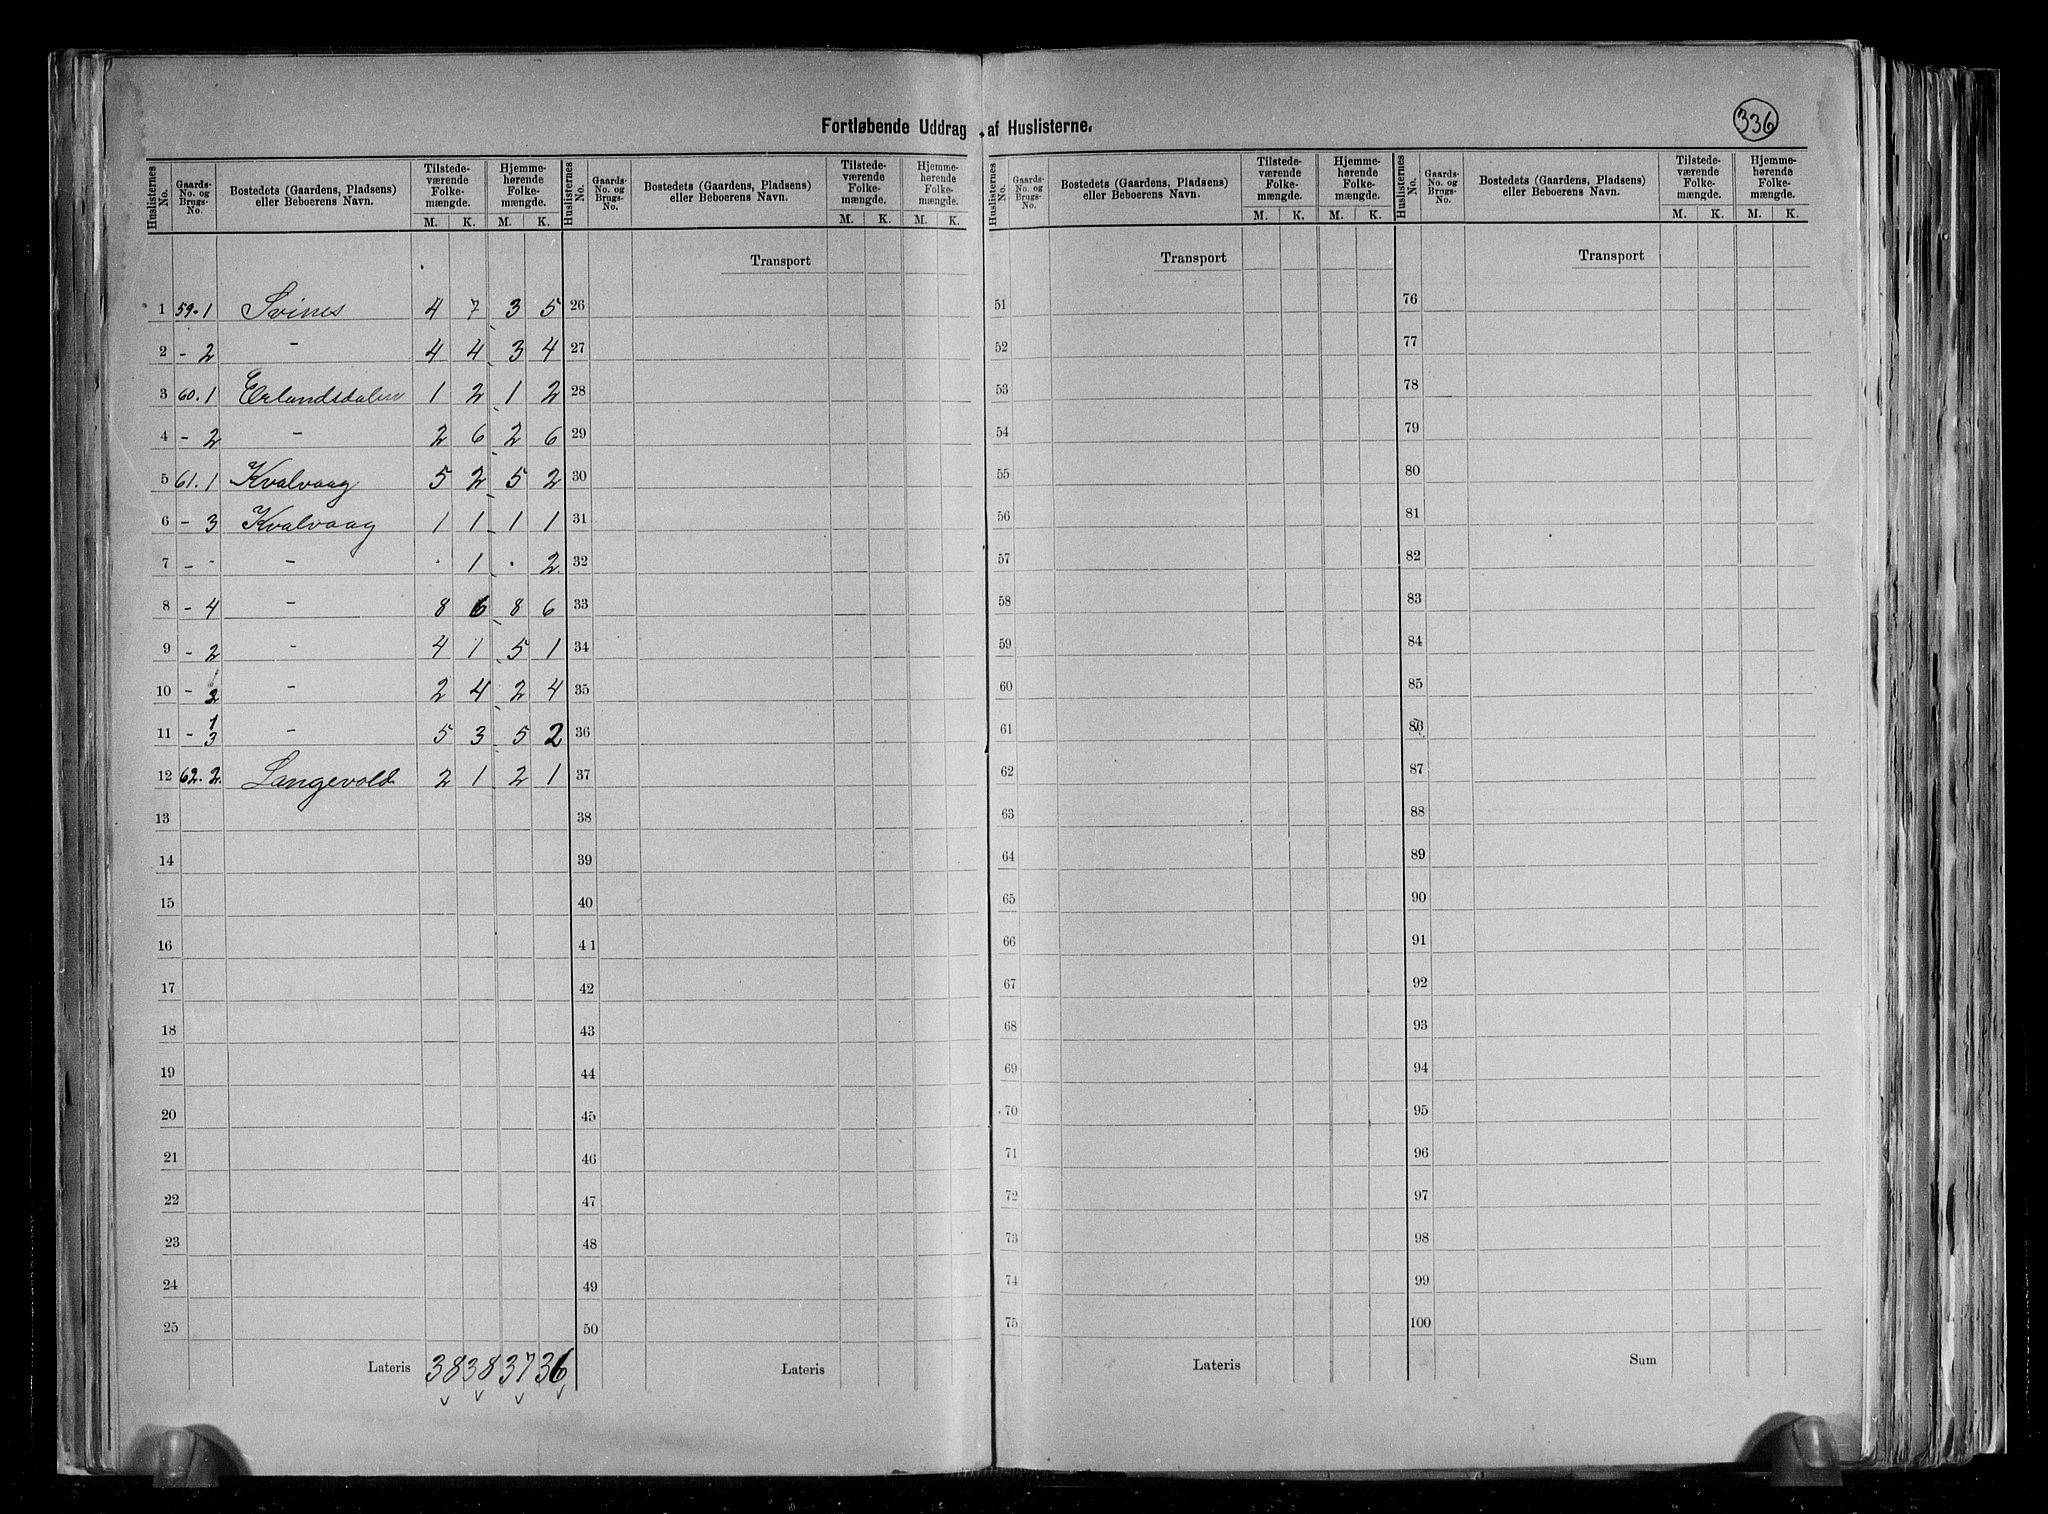 Fortløbende Uddrag af Huslisterne.
336
Huslisternes No. | Gaards-No. og Brugs-No. | Bostedets (Gaardens, Pladsens) eller Beboerens Navn. | Tilstedeværende Folkemængde. M. K. | Hjemmehørende Folkemængde. M. K.
1 59.1 Svines 4 7 3 5
2 - 2 - 4 4 3 4
3 60.1 Erlandsdalen 1 2 1 2
4 - 2 - 2 6 2 6
5 61.1 Kvalvaag 5 2 5 2
6 - 3 Kvalvaag 1 1 1 1
7 - - - · 1 · 2
8 - 4 - 8 6 8 6
9 - 2 - 4 1 5 1
10 - 2 - 2 4 2 4
11 - 1/3 - 5 3 5 2
12 62.2. Langevold 2 1 2 1
13
14
15
16
17
18
19
20
21
22
23
24
25
Lateris 38 38 37 36
Huslisternes No. | Gaards-No. og Brugs-No. | Bostedets (Gaardens, Pladsens) eller Beboerens Navn. | Tilstedeværende Folkemængde. M. K. | Hjemmehørende Folkemængde. M. K.
Transport
26
27
28
29
30
31
32
33
34
35
36
37
38
39
40
41
42
43
44
45
46
47
48
49
50
Lateris
Huslisternes No. | Gaards-No. og Brugs-No. | Bostedets (Gaardens, Pladsens) eller Beboerens Navn. | Tilstedeværende Folkemængde. M. K. | Hjemmehørende Folkemængde. M. K.
Transport
51
52
53
54
55
56
57
58
59
60
61
62
63
64
65
66
67
68
69
70
71
72
73
74
75
Lateris
Huslisternes No. | Gaards-No. og Brugs-No. | Bostedets (Gaardens, Pladsens) eller Beboerens Navn. | Tilstedeværende Folkemængde. M. K. | Hjemmehørende Folkemængde. M. K.
Transport
76
77
78
79
80
81
82
83
84
85
86
87
88
89
90
91
92
93
94
95
96
97
98
99
100
Sum